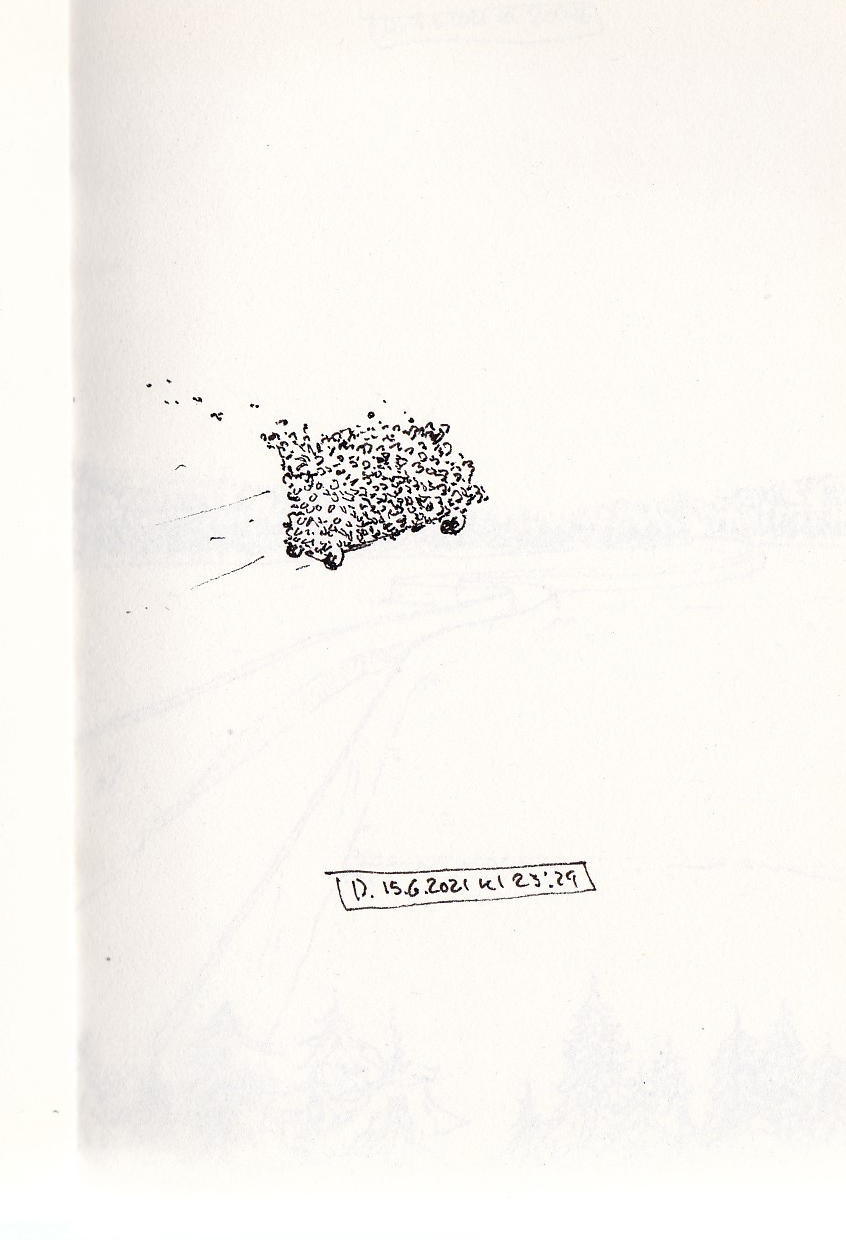 D. 15.6.2021 kl 23:29